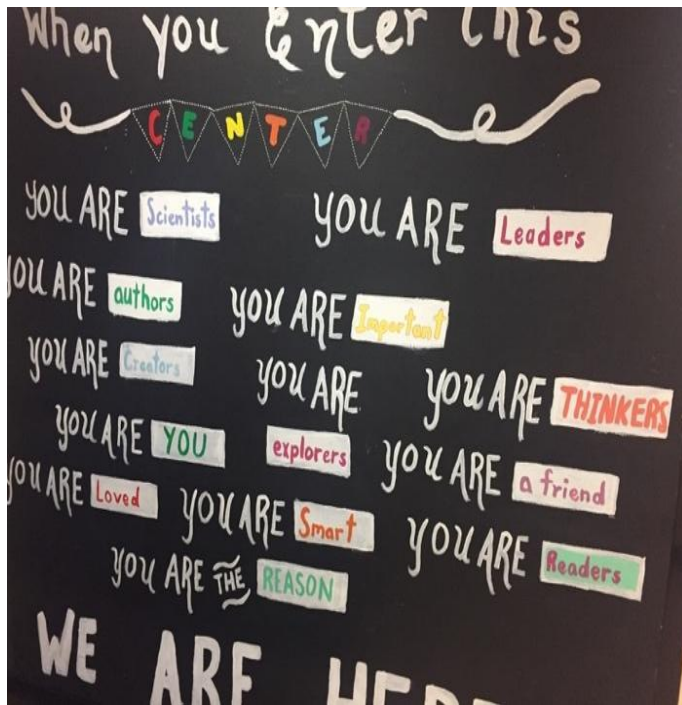 When you Enter this
CENTER
YOU ARE Scientists YOU ARE Leaders
YOU ARE authors YOU ARE Important
YOU ARE Creators YOU ARE explorers YOU ARE THINKERS
YOU ARE YOU YOU ARE a friend
YOU ARE Loved YOU ARE Smart YOU ARE Readers
YOU ARE THE REASON
WE ARE HERE